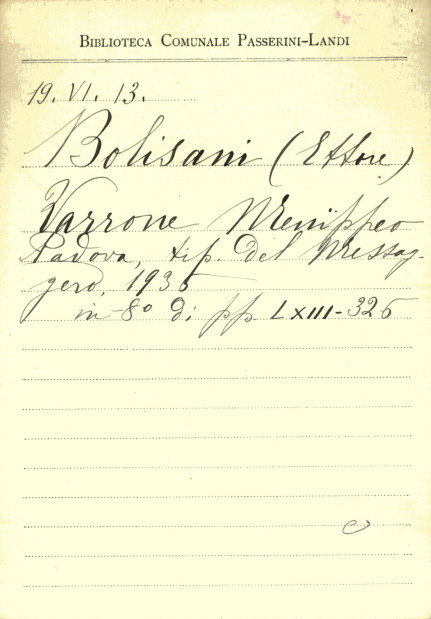 BIBLIOTECA COMUNALE PASSERINI-LANDI
19. VI. 13.
Bolisani (Ettore)
Varrone Menippeo
Padova, tip. del Messag-
gero, 1936
in-8° di pp. LXIII-326